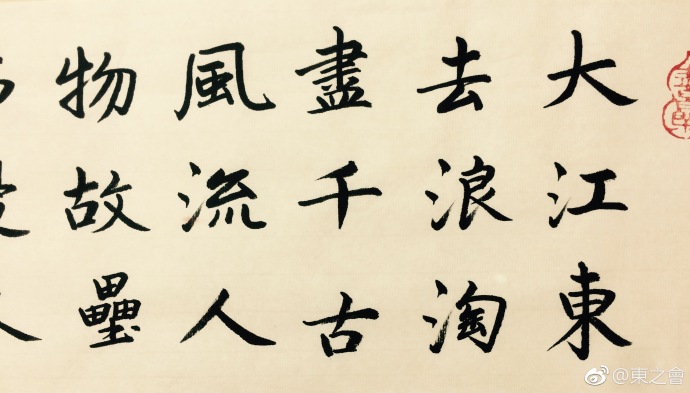 大江東
去浪淘
盡千古
風流人
物故壘
@東之會